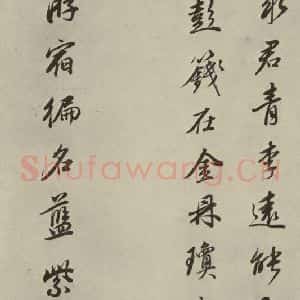 君青李遠能
彭籛在金丹瓊
游宿徧名藍紫
Shufawang.Cn